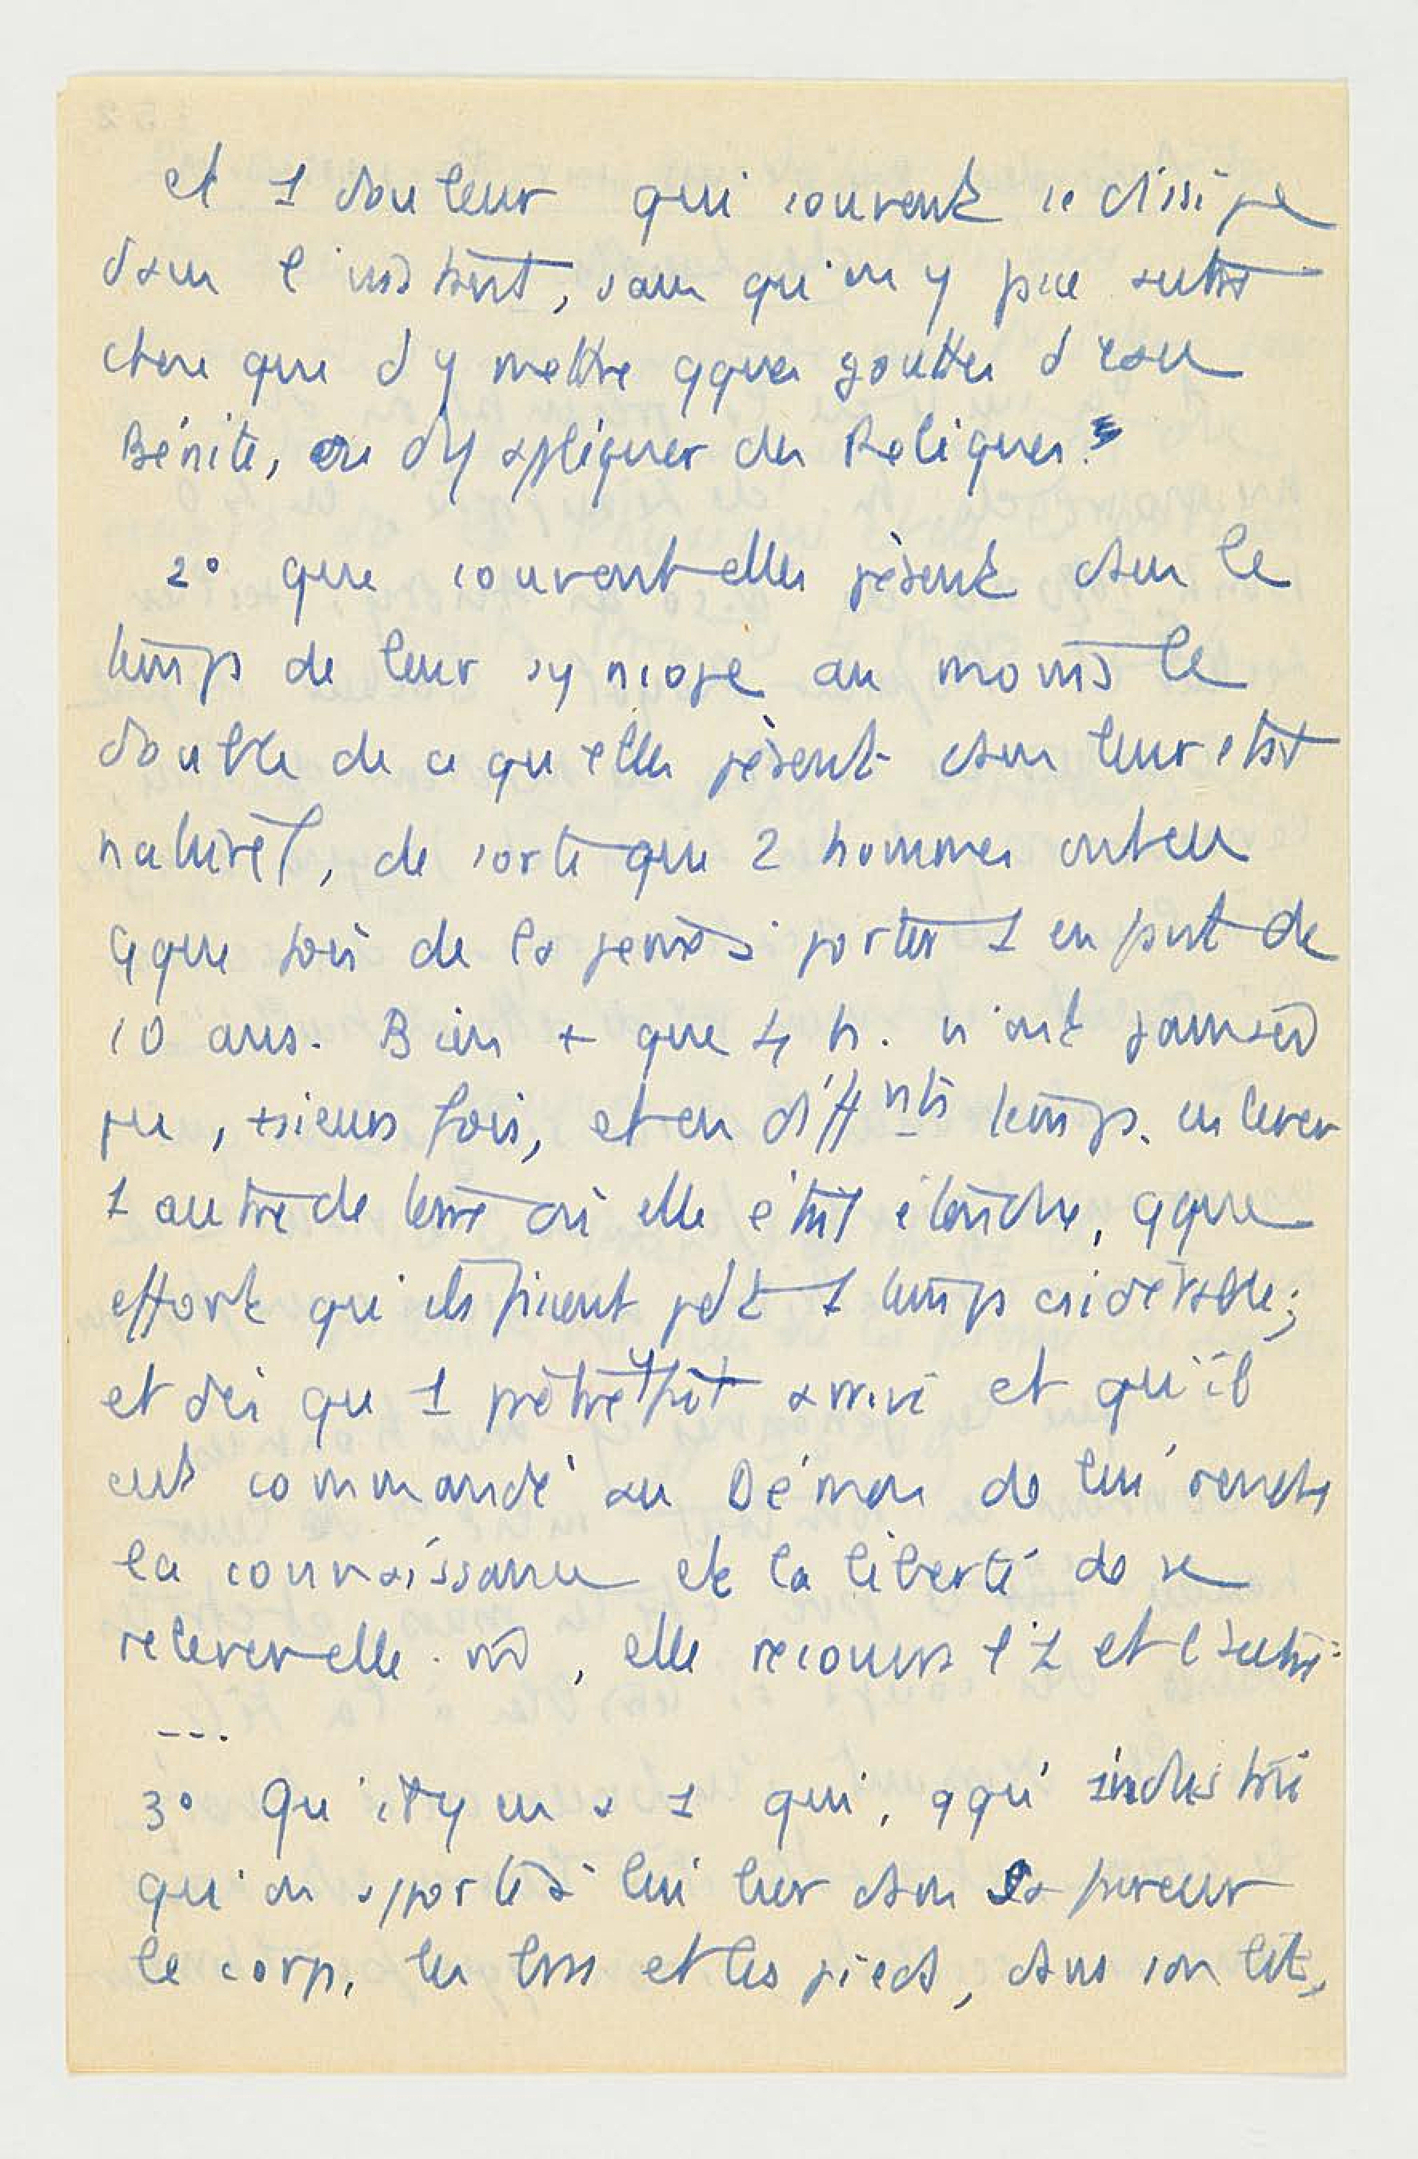 et 1 douleur qui souvent se dissipe
dans l'instant, sans qu'on y fîsse autre
chose que d'y mettre qques gouttes d'eau
Bénite, ou d'y appliquer des Reliques.
2° que souvent elles pèsent dans le
temps de leur syncope au moins le
double de ce qu'elles pèsent dans leur état
naturel, de sorte que 2 hommes ont eu
qque fois de la peine à porter 1 enfant de
10 ans. Bien + que 4 h. n'ont jamais
pu, +sieurs fois, et en difffnts temps. enlever
1 autre de terre où elle était étendue, qque
effort qu'ils fissent pdt 1 temps csidérable;
et dès qu 1 prêtre y fût arrivé et qu'il
eut commandé au Démon de lui rendre
la connaissance et la liberté de se
relever elle. m̂, elle recouvra l'1 et l'autre.
---
3° Qu'il y en a 1 qui, qqu' industrie
qu'on apporte à lui lier dans sa fureur
le corps, les bras et les pieds, dans son lit,